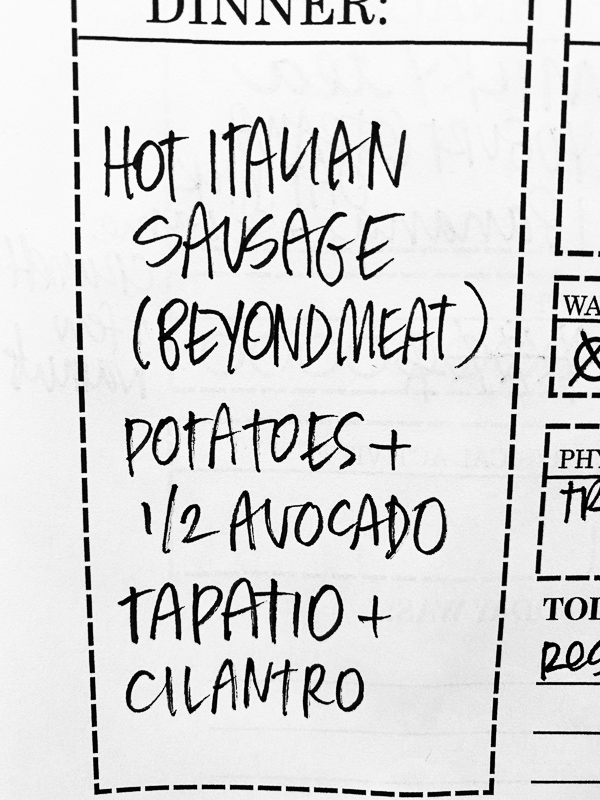 DINNER:
HOT ITALIAN
SAUSAGE
(BEYOND MEAT)
POTATOES +
1/2 AVOCADO
TAPATIO +
CILANTRO
WA
PHY
TR
TOD